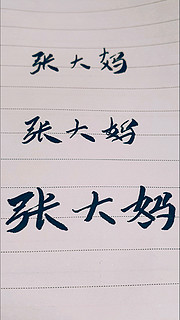 张大妈
张大妈
张大妈